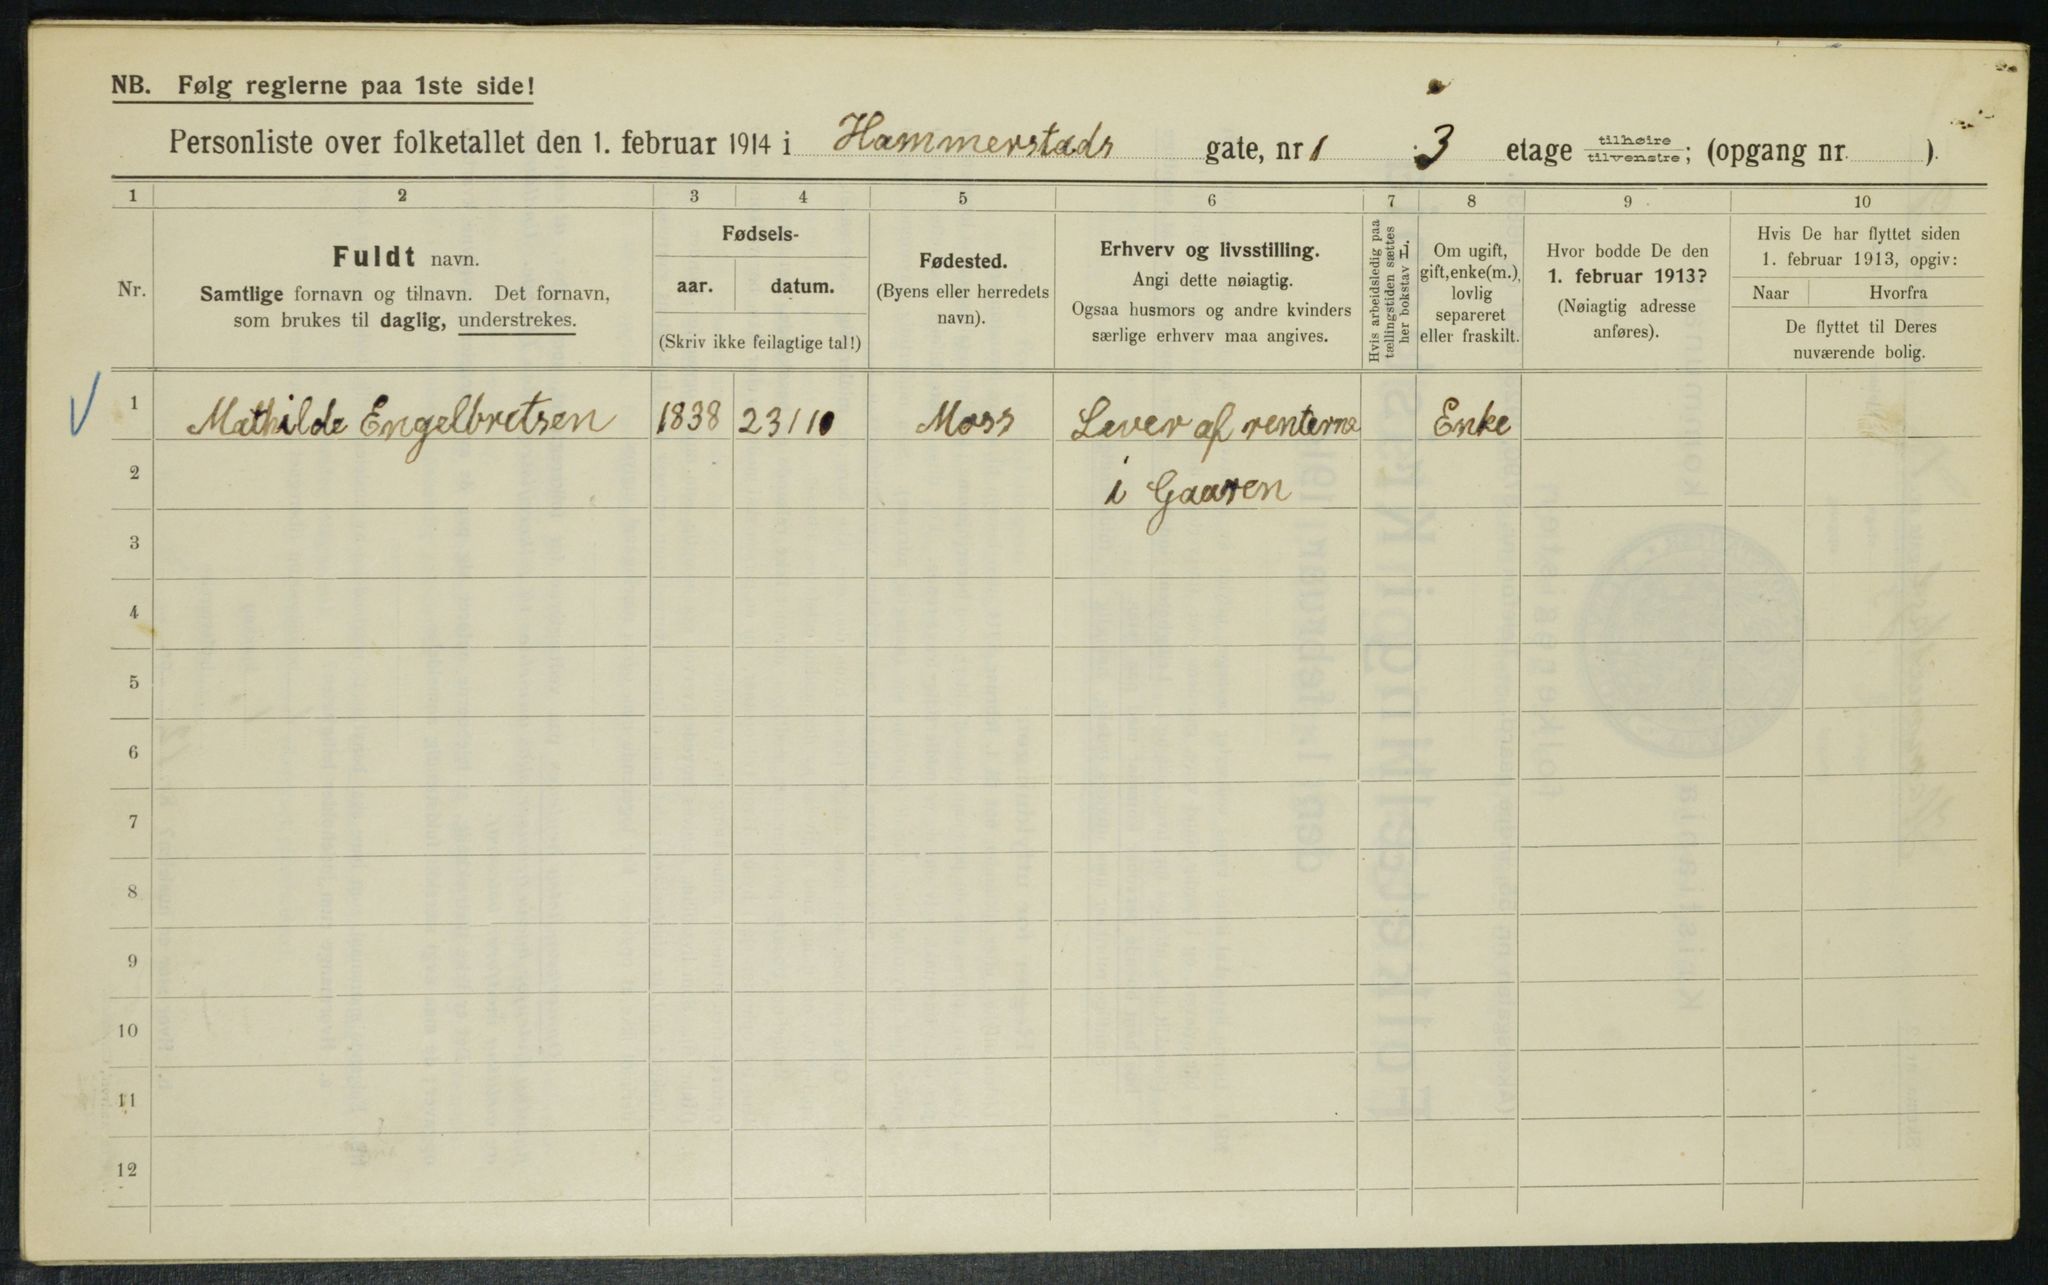 NB. Følg reglerne paa 1ste side!
Personliste over folketallet den 1. februar 1914 i Hammerstads gate, nr 1 3 etage tilhøire tilvenstre; (opgang nr. ).
1 2 3 4 5 6 7 8 9 10
Nr.
Fuldt navn.
Samtlige fornavn og tilnavn. Det fornavn,
som brukes til daglig, understrekes.
Fødsels-
aar. datum.
(Skriv ikke feilagtige tal!)
Fødested.
(Byens eller herredets
navn).
Erhverv og livsstilling.
Angi dette nøiagtig.
Ogsaa husmors og andre kvinders
særlige erhverv maa angives.
Hvis arbeidsledig paa
tællingstiden sættes
her bokstav L.
Om ugift,
gift, enke(m.),
lovlig
separeret
eller fraskilt.
Hvor bodde De den
1. februar 1913?
(Nøiagtig adresse
anføres).
Hvis De har flyttet siden
1. februar 1913, opgiv:
Naar Hvorfra
De flyttet til Deres
nuværende bolig.
1 Mathilde Engelbretsen 1838 23/10 Moss Lever af renterne Enke
2 i Gaaren
3
4
5
6
7
8
9
10
11
12